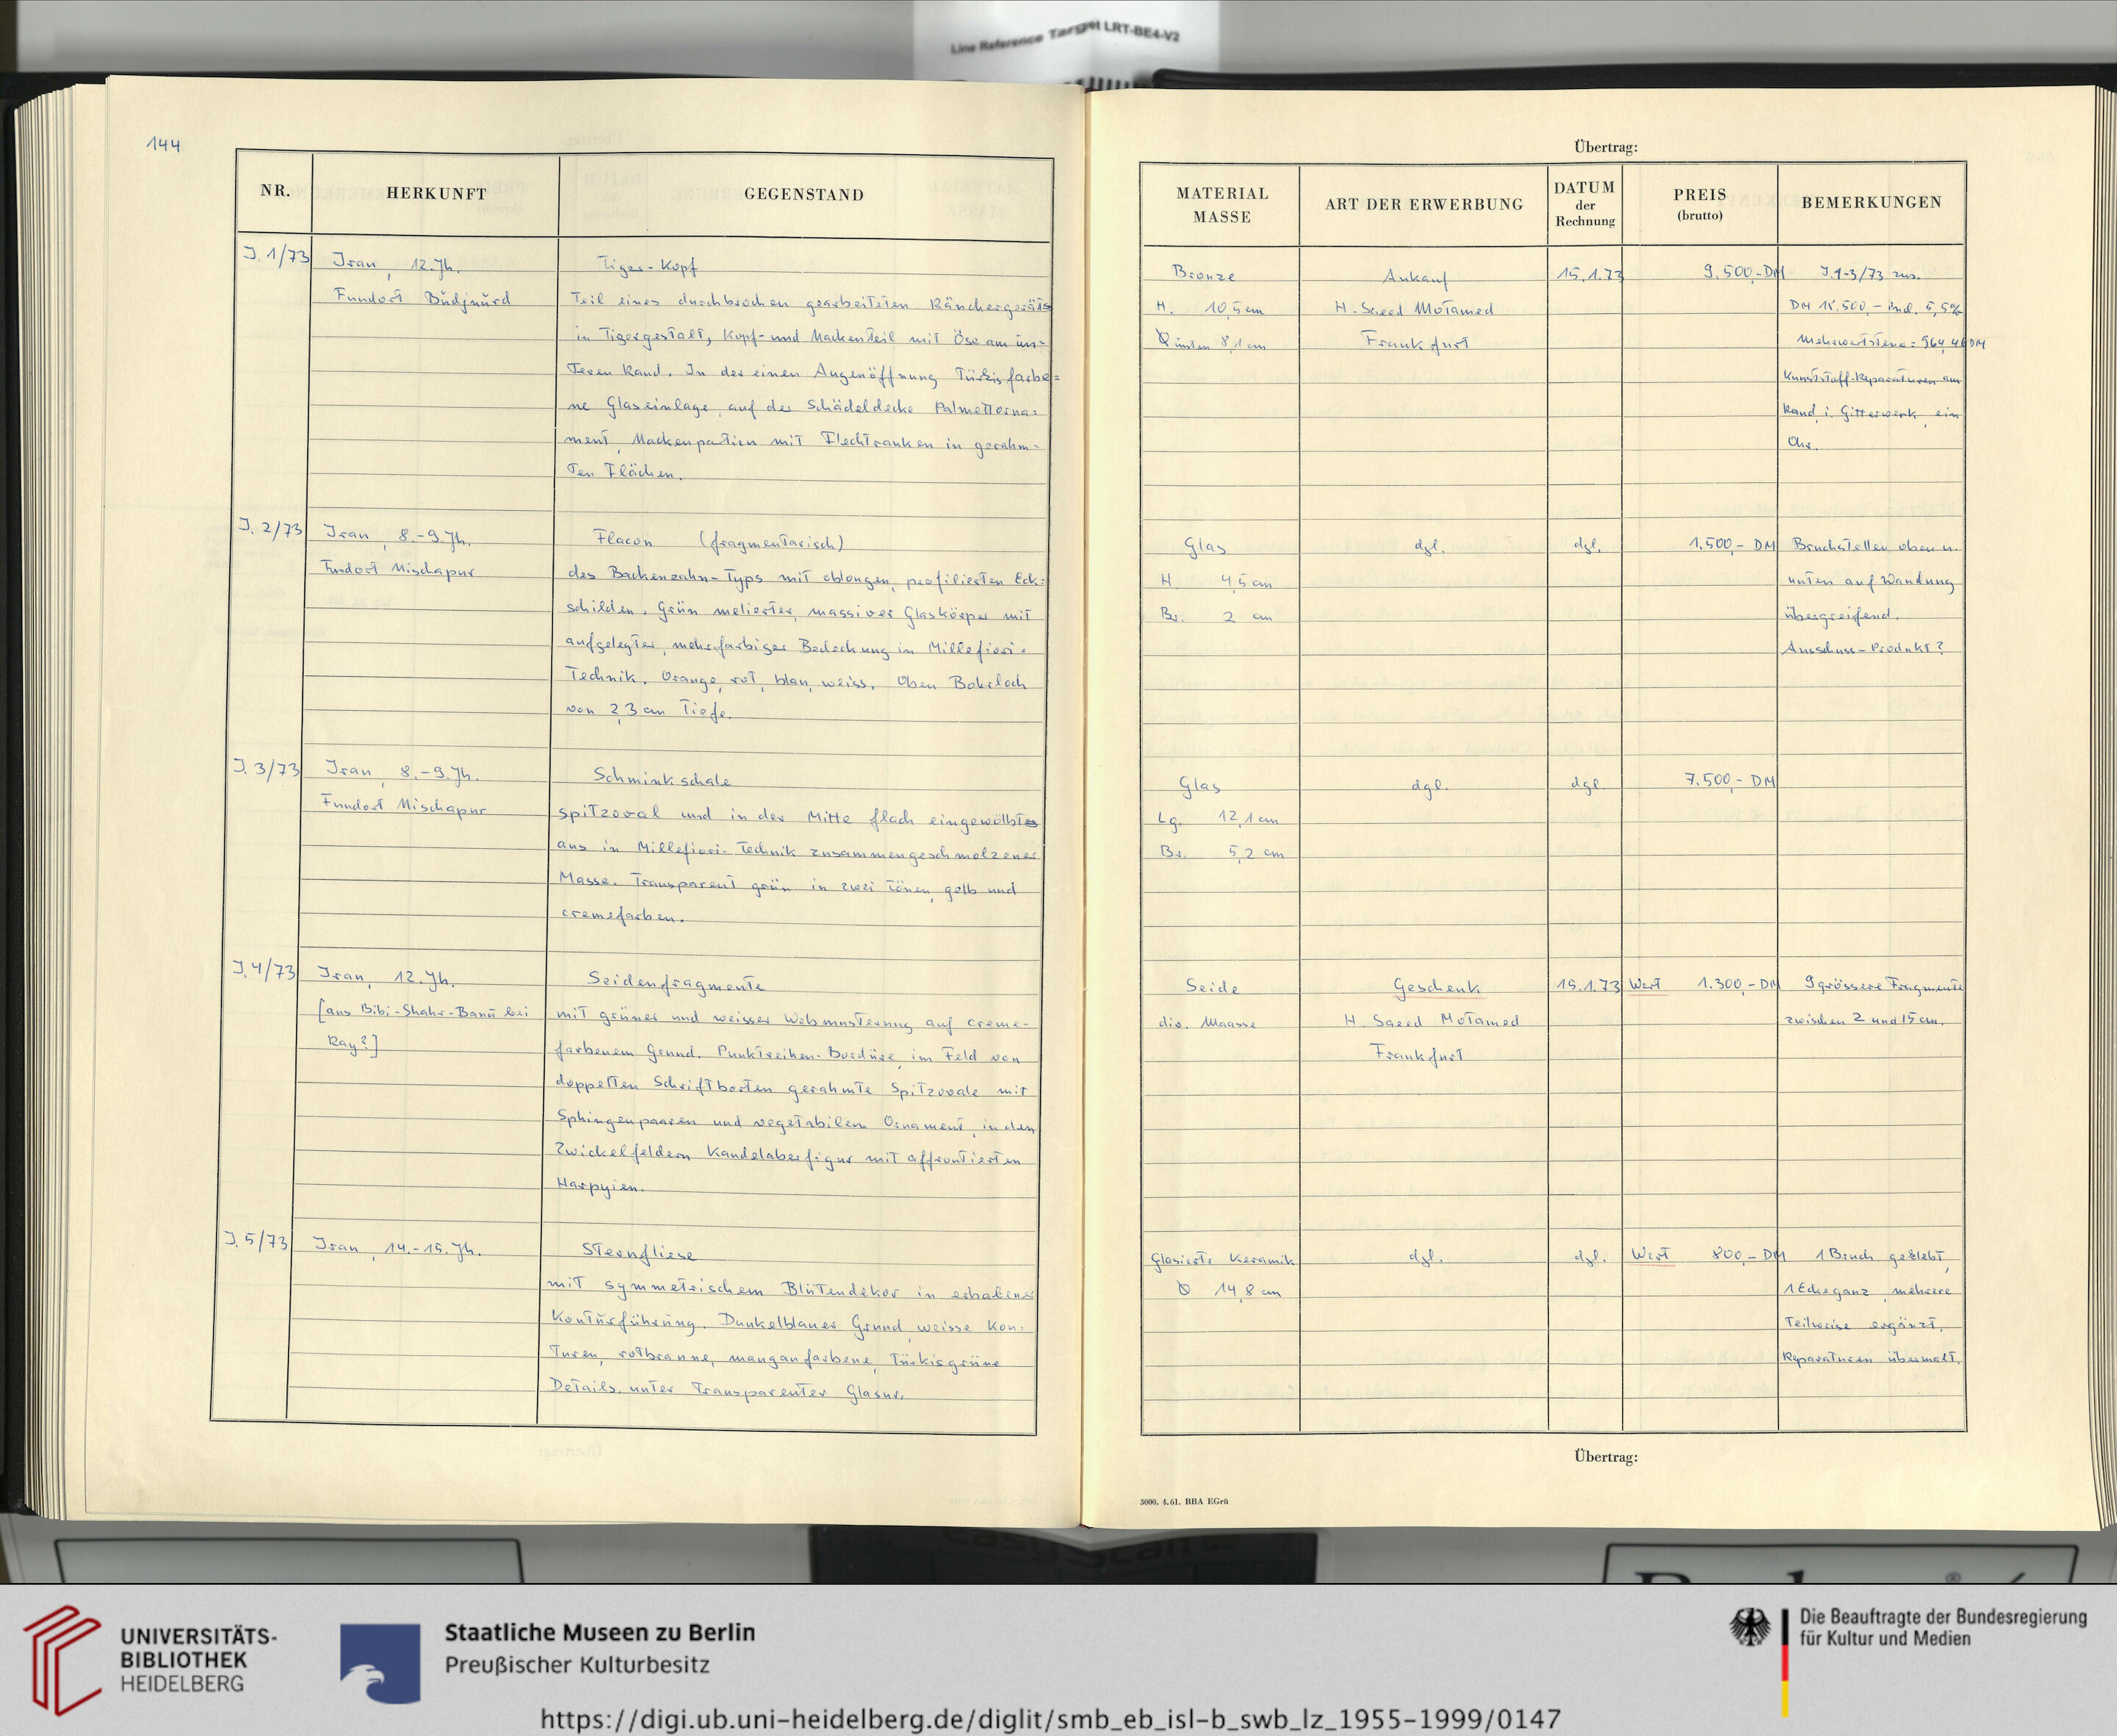 Line Reference Target LRT-BE4-V2
144
NR.
HERKUNFT
GEGENSTAND
J. 1/73
Iran, 12. Jh.
Fundort Budjnurd
Tiger-Kopf
Teil eines durchbrochen gearbeiteten Räuchergeräts
in Tigergestalt, Kopf- und Nackenteil mit Öse am un=
teren Rand. In der einen Augenöffnung türkisfarbe=
ne Glaseinlage, auf der Schädeldecke Palmettorna=
ment, Nackenpartien mit Flechtranken in gerahm=
ten Flächen.
J. 2/73
Iran, 8.-9. Jh.
Fundort Nischapur
Flacon (fragmentarisch)
des Backenzahn-Typs mit oblongen, profilierten Eck=
schilden. Grün melierter, massiver Glaskörper mit
aufgelegter, mehrfarbiger Bedeckung in Millefiori=
Technik. Orange, rot, blau, weiss. Oben Bohrloch
von 2,3 cm Tiefe.
J. 3/73
Iran, 8.-9. Jh.
Fundort Nischapur
Schminkschale
spitzoval und in der Mitte flach eingewölbt
aus in Millefiori-Technik zusammengeschmolzener
Masse. Transparent grün in zwei Tönen, gelb und
cremefarben.
J. 4/73
Iran, 12. Jh.
[aus Bibi-Shahr-Banu bei
Ray?]
Seidenfragmente
mit grüner und weisser Webmusterung auf creme-
farbenem Grund. Punktreihen-Bordüre, im Feld von
doppelten Schriftborten gerahmte Spitzovale mit
Sphingenpaaren und vegetabilem Ornament, in den
Zwickelfeldern Kandelaberfigur mit affrontierten
Harpyien.
J. 5/73
Iran, 14.-15. Jh.
Sternfliese
mit symmetrischem Blütendekor in erhabener
Konturführung. Dunkelblauer Grund, weisse Kon-
turen, rotbraune, manganfarbene, türkisgrüne
Details unter transparenter Glasur.
Übertrag:
MATERIAL
MASSE
ART DER ERWERBUNG
DATUM
der
Rechnung
PREIS
(brutto)
BEMERKUNGEN
Bronze
H. 10,5 cm
Ø unten 8,1 cm
Ankauf
H. Saeed Motamed
Frankfurt
15.1.73
9.500,- DM
J. 1-3/73 zus.
DM 18.500,- incl. 5,5%
Mehrwertsteuer = 964,46 DM
Kunststoff-Reparaturen am
Rand i. Gitterwerk, ein
Ohr.
Glas
H. 4,5 cm
Br. 2 cm
dgl.
dgl.
1.500,- DM
Bruchstellen oben u.
unten auf Wandung
übergreifend.
Ausschuss-Produkt?
Glas
Lg. 12,1 cm
Br. 5,2 cm
dgl.
dgl.
7.500,- DM
Seide
div. Maasse
Geschenk
H. Saeed Motamed
Frankfurt
15.1.73
Wert 1.300,- DM
9 grössere Fragmente
zwischen 2 und 15 cm.
Glasierte Keramik
Ø 14,8 cm
dgl.
dgl.
Wert 800,- DM
1 Bruch geklebt,
1 Ecke ganz, mehrere
teilweise ergänzt.
Reparaturen übermalt.
Übertrag:
3000. 4.61. BBA EGrü
UNIVERSITÄTS-
BIBLIOTHEK
HEIDELBERG
Staatliche Museen zu Berlin
Preußischer Kulturbesitz
Die Beauftragte der Bundesregierung
für Kultur und Medien
https://digi.ub.uni-heidelberg.de/diglit/smb_eb_isl-b_swb_lz_1955-1999/0147